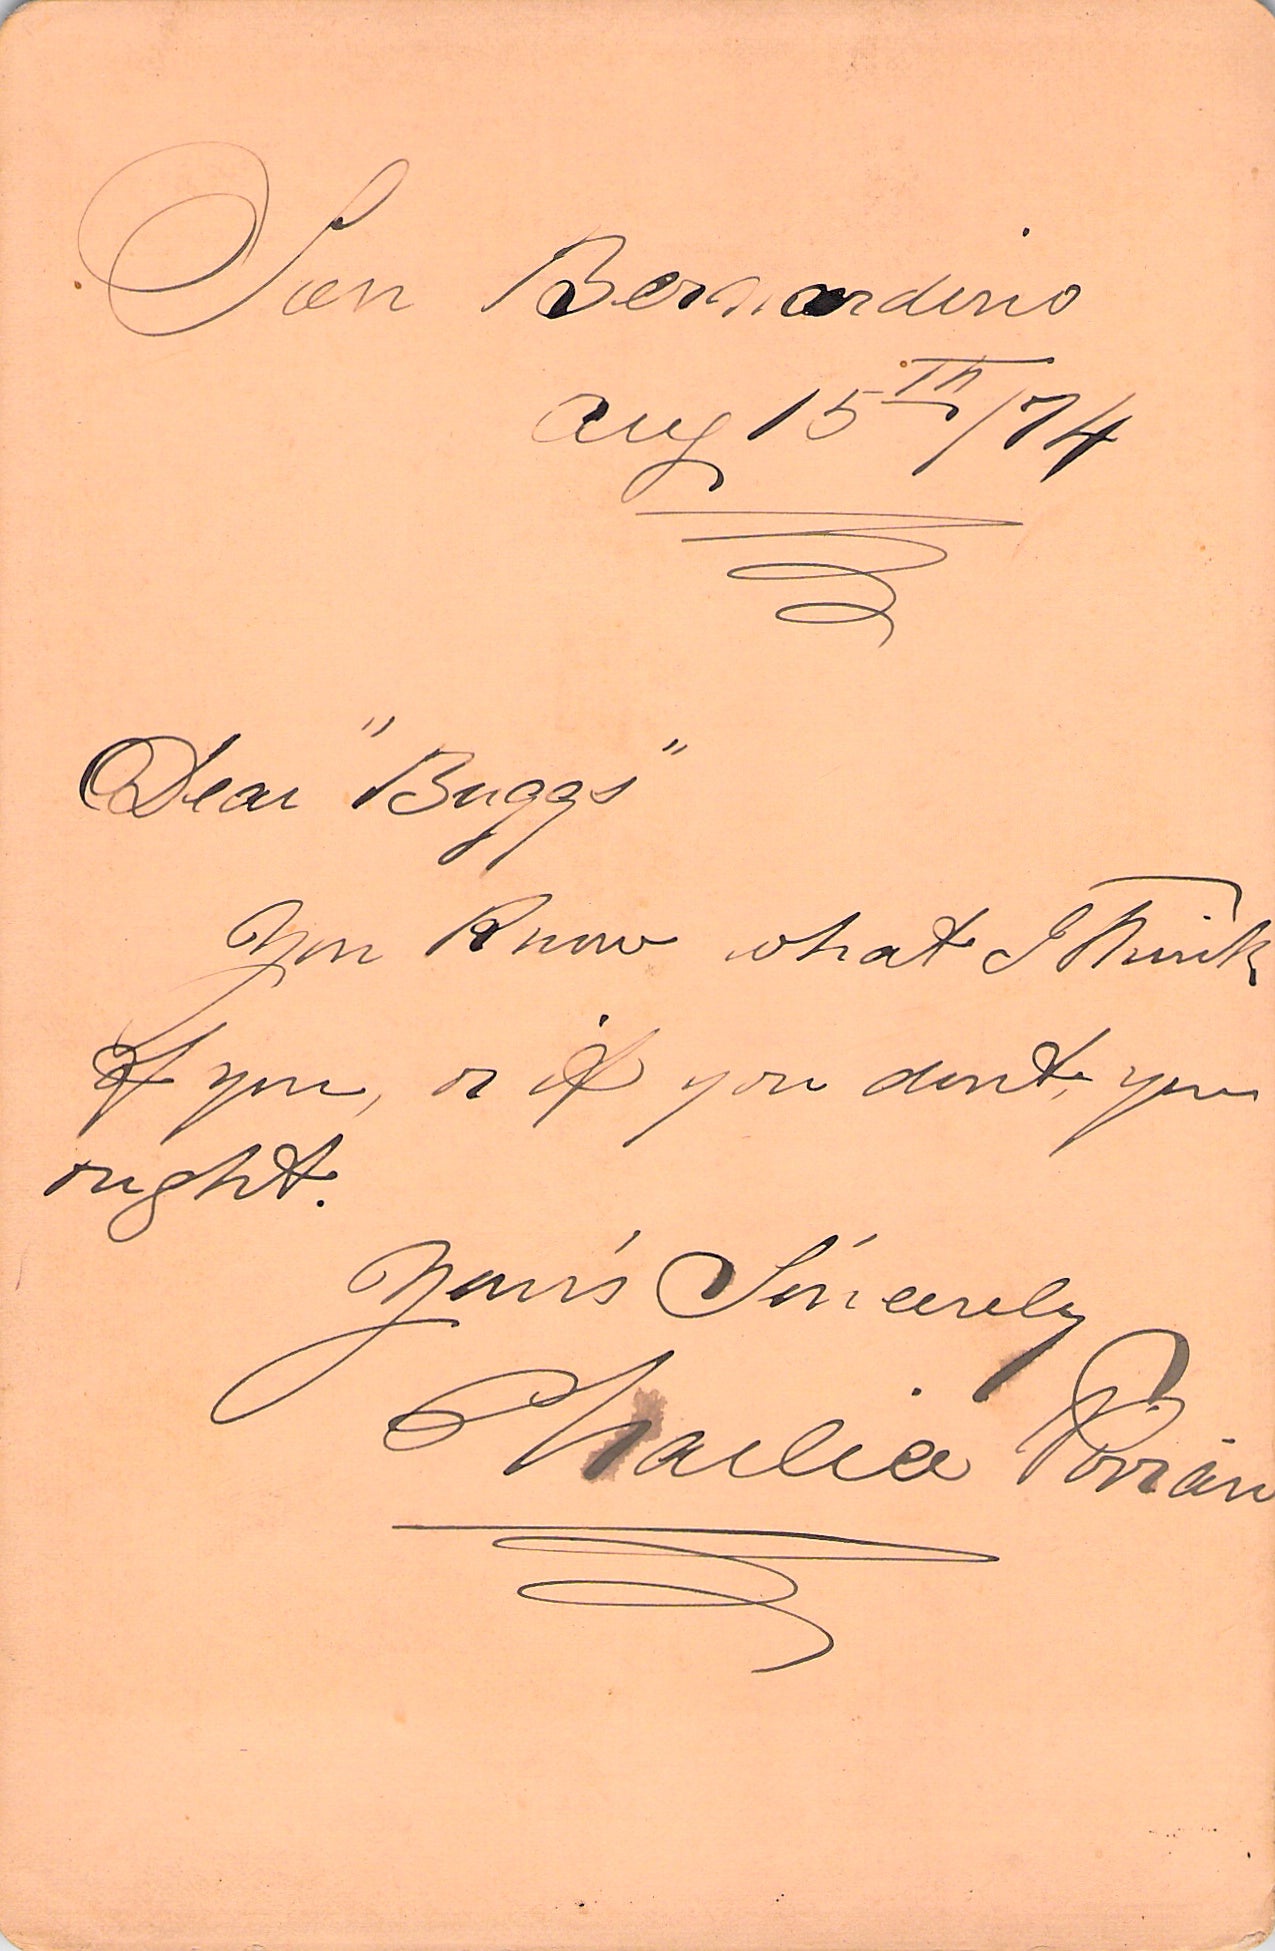 San Bernardino
Aug 15th/74
Dear "Buggs"
You Know what I Think
of you, or if you dont, you
ought.
Your's Sincerely
Charlie